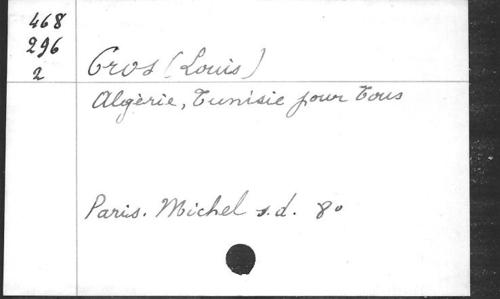 468
296
2
Gros (Louis)
Algérie, Tunisie pour Tous
Paris. Michel s.d. 8°